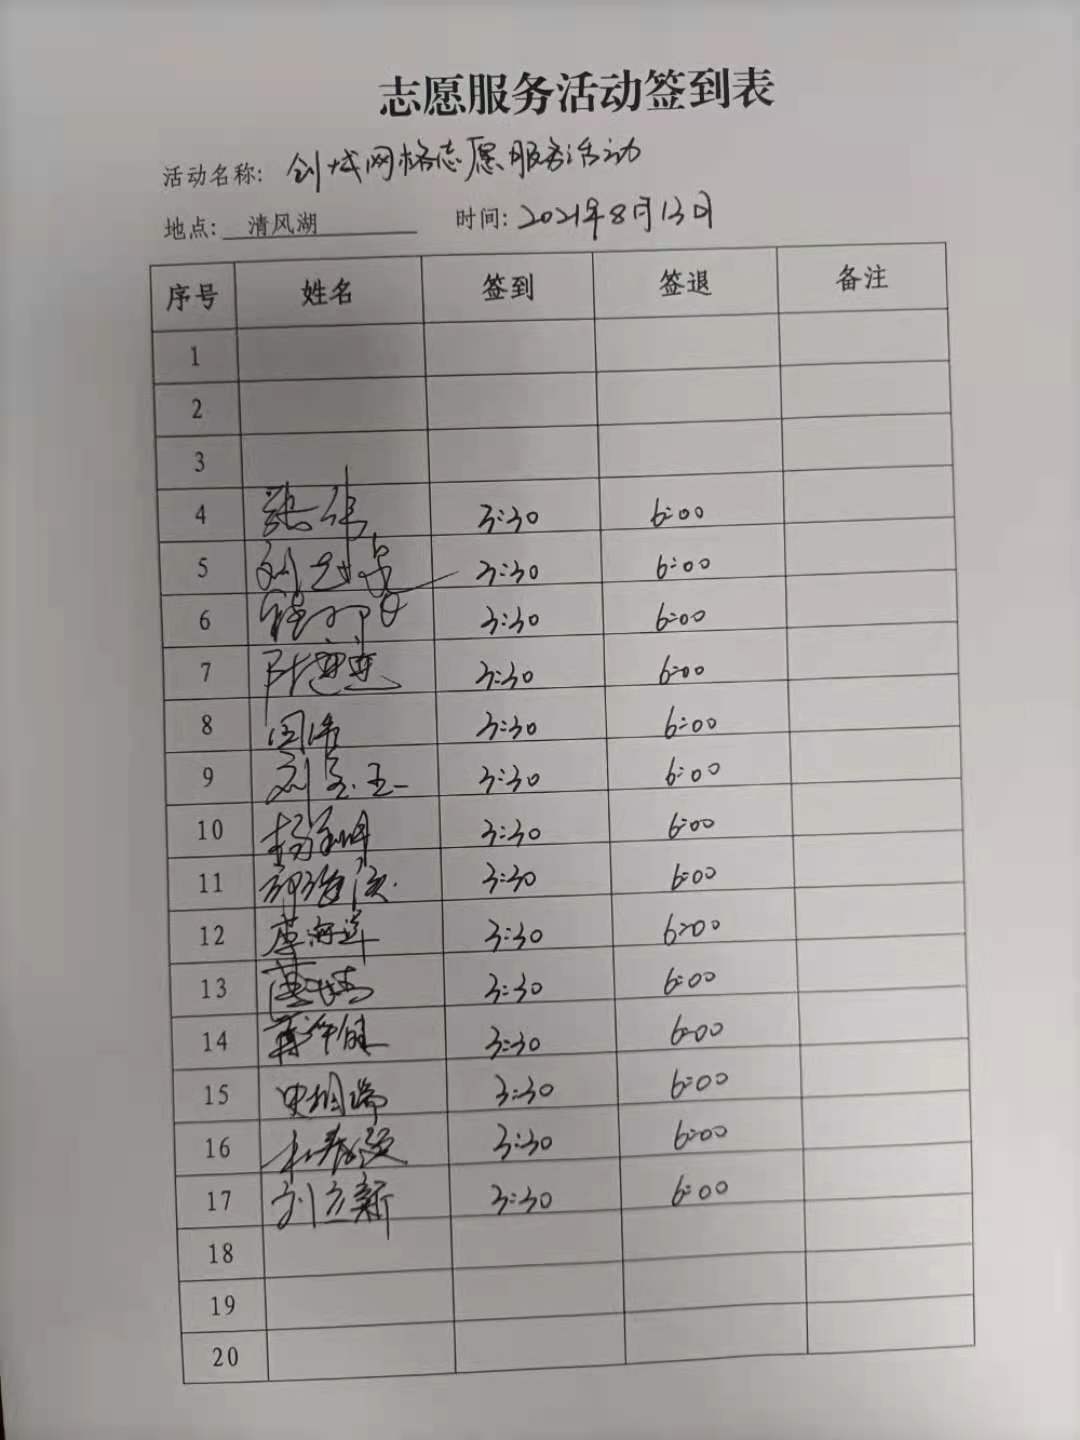 志愿服务活动签到表
活动名称: 创城网格志愿服务活动
地点: 清风湖 时间: 2021年8月13日
序号 姓名 签到 签退 备注
1
2
3
4 张华 3:30 6:00
5 3:30 6:00
6 3:30 6:00
7 3:30 6:00
8 3:30 6:00
9 3:30 6:00
10 3:30 6:00
11 3:30 6:00
12 3:30 6:00
13 3:30 6:00
14 3:30 6:00
15 3:30 6:00
16 3:30 6:00
17 刘立新 3:30 6:00
18
19
20